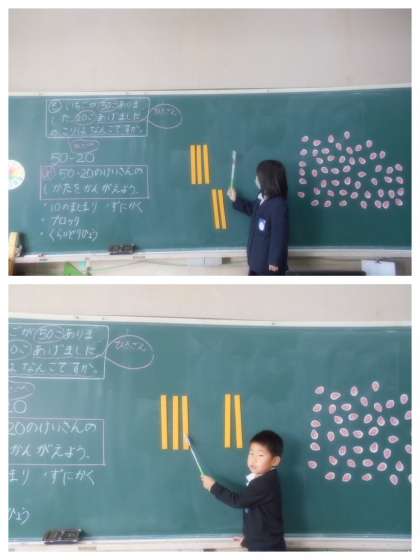 いちごが50こありま
した。20こあげました。
のこりはなんこですか。
ひきざん
50-20
50-20のけいさんの
しかたをかんがえよう。
・10のまとまり ・ずにかく
・ブロック
・くらいどりひょう
ごが50こありま
0こあげました
はなんこですか。
ひきざん
20
20のけいさんの
かんがえよう。
まり ・ずにかく
ひょう